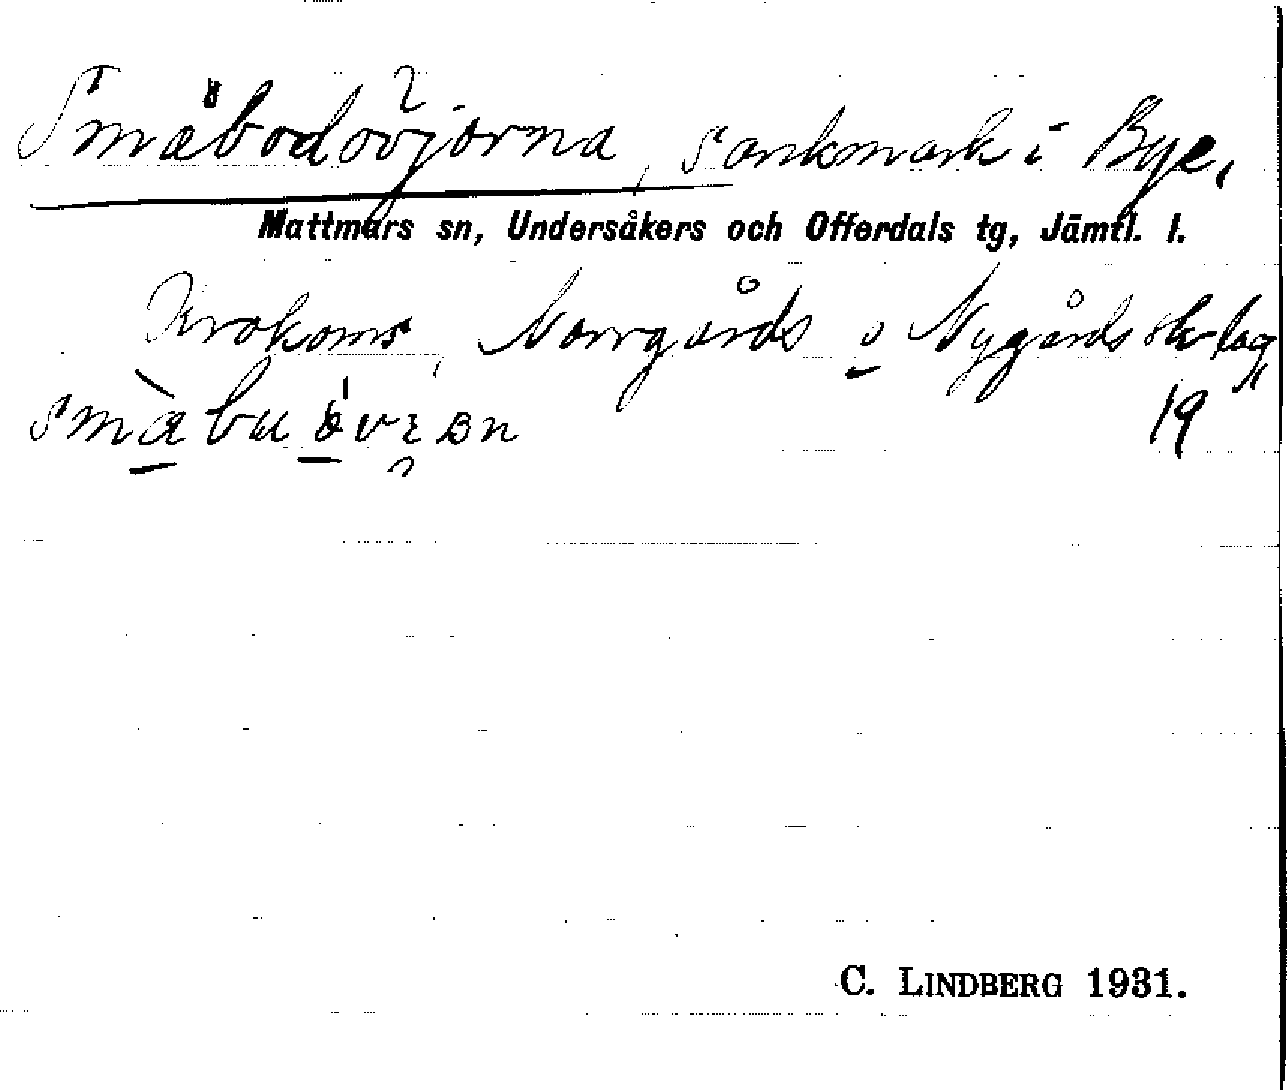 Småbodövjorna, sankmark i Bye,
Mattmars sn, Undersåkers och Offerdals tg, Jämtl. l.
Krokoms, Norrgårds o Nygårds sk-lag
19
C. LINDBERG 1931.